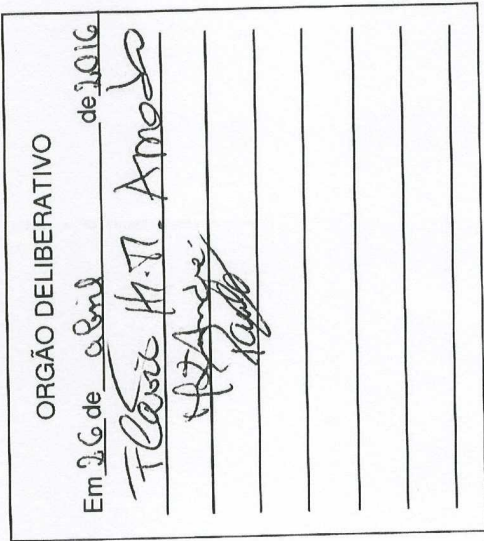 ORGÃO DELIBERATIVO
Em 26 de abril de 2016
Flávio H. M. Amado
André